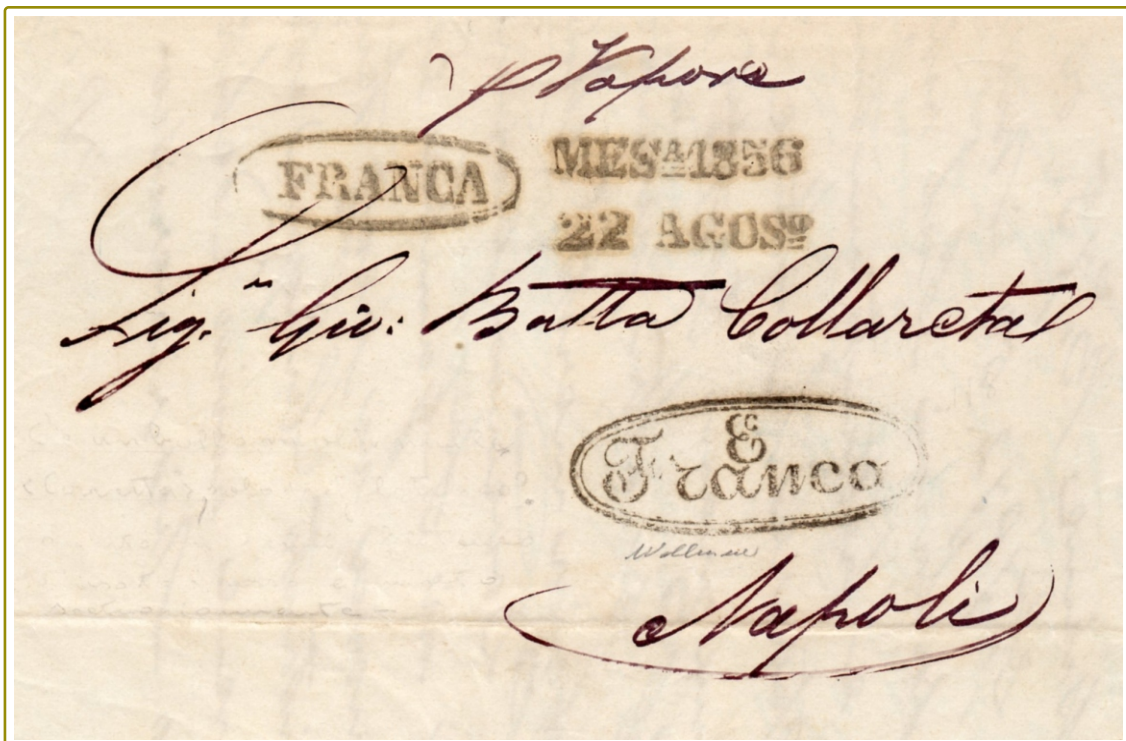 p Vapore
FRANCA
MESA 1856
22 AGOSO
Sigr Gio: Batta Collareta
E
Franco
Napoli